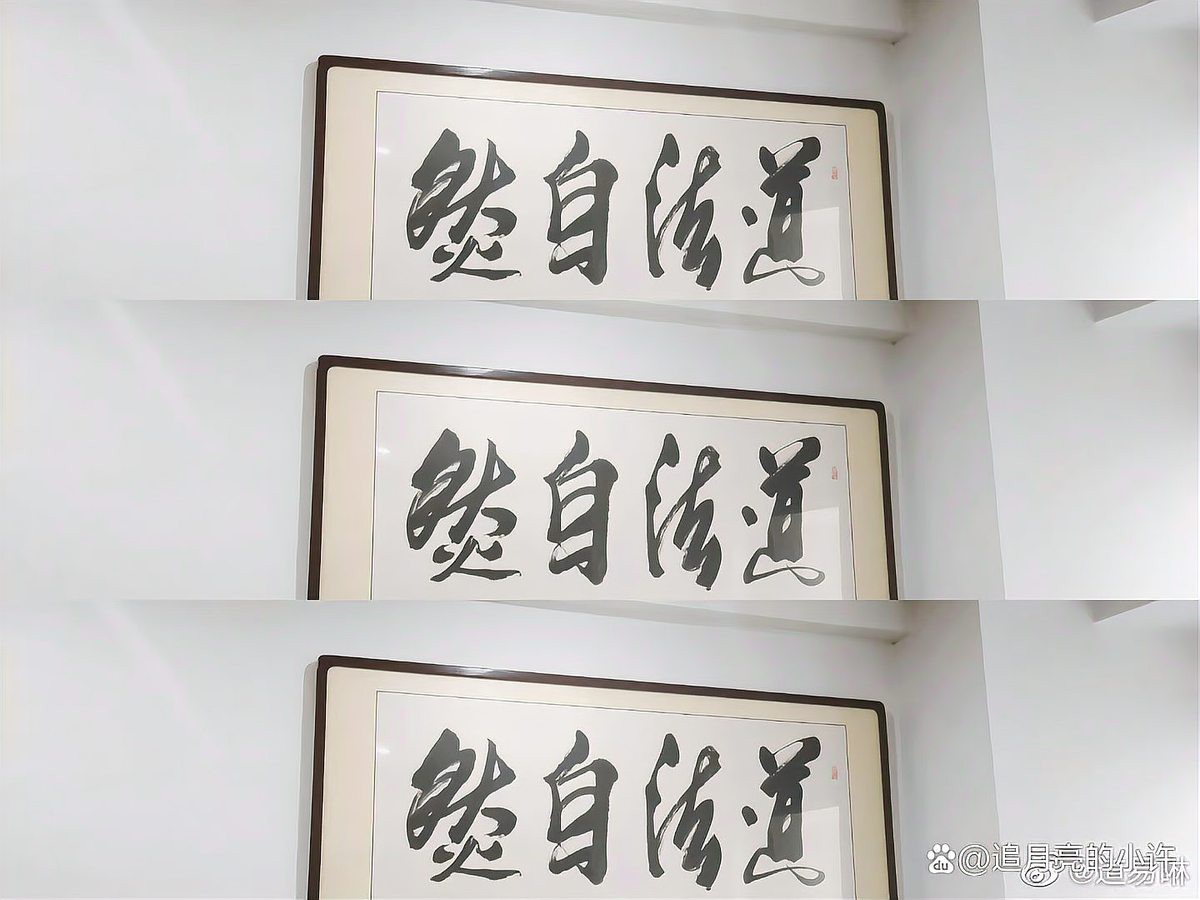 道法自然
道法自然
道法自然
du @追月亮的小许